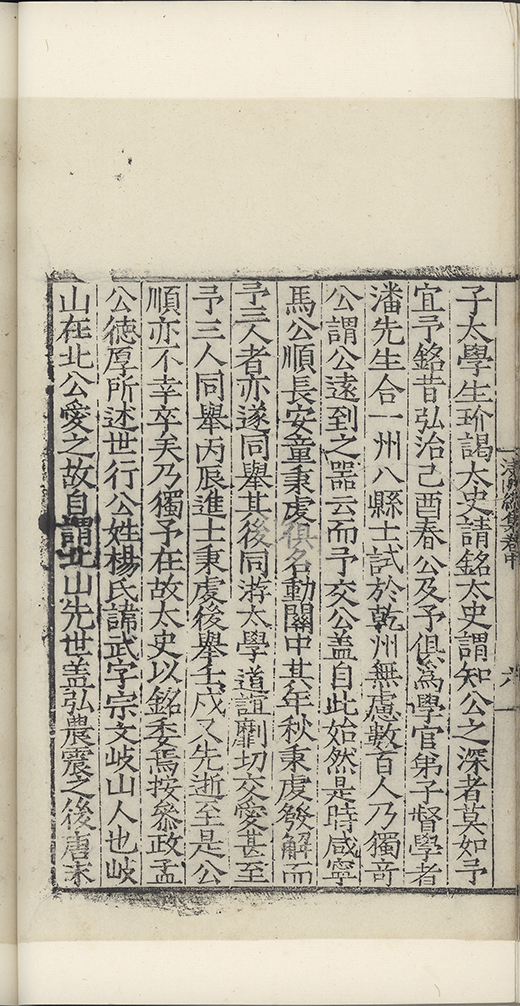 子太學生玠謁太史請銘太史謂知公之深者莫如予
宜予銘昔弘治己酉春公及予俱爲學官弟子督學者
潘先生合一州八縣士試於乾州無慮數百人乃獨奇
公謂公遠到之器云而予交公盖自此始然是時咸寧
馬公順長安童秉虔俱名動關中其年秋秉虔發解而
予三人者亦遂同舉其後同游太學道誼劘切交愛甚至
予三人同舉丙辰進士秉虔後舉壬戌又先逝至是公
順亦不幸卒矣乃獨予在故太史以銘委焉按叅政孟
公德厚所述世行公姓楊氏諱武字宗文岐山人也岐
山在北公愛之故自謂北山先世盖弘農震之後唐末
續集卷中
六